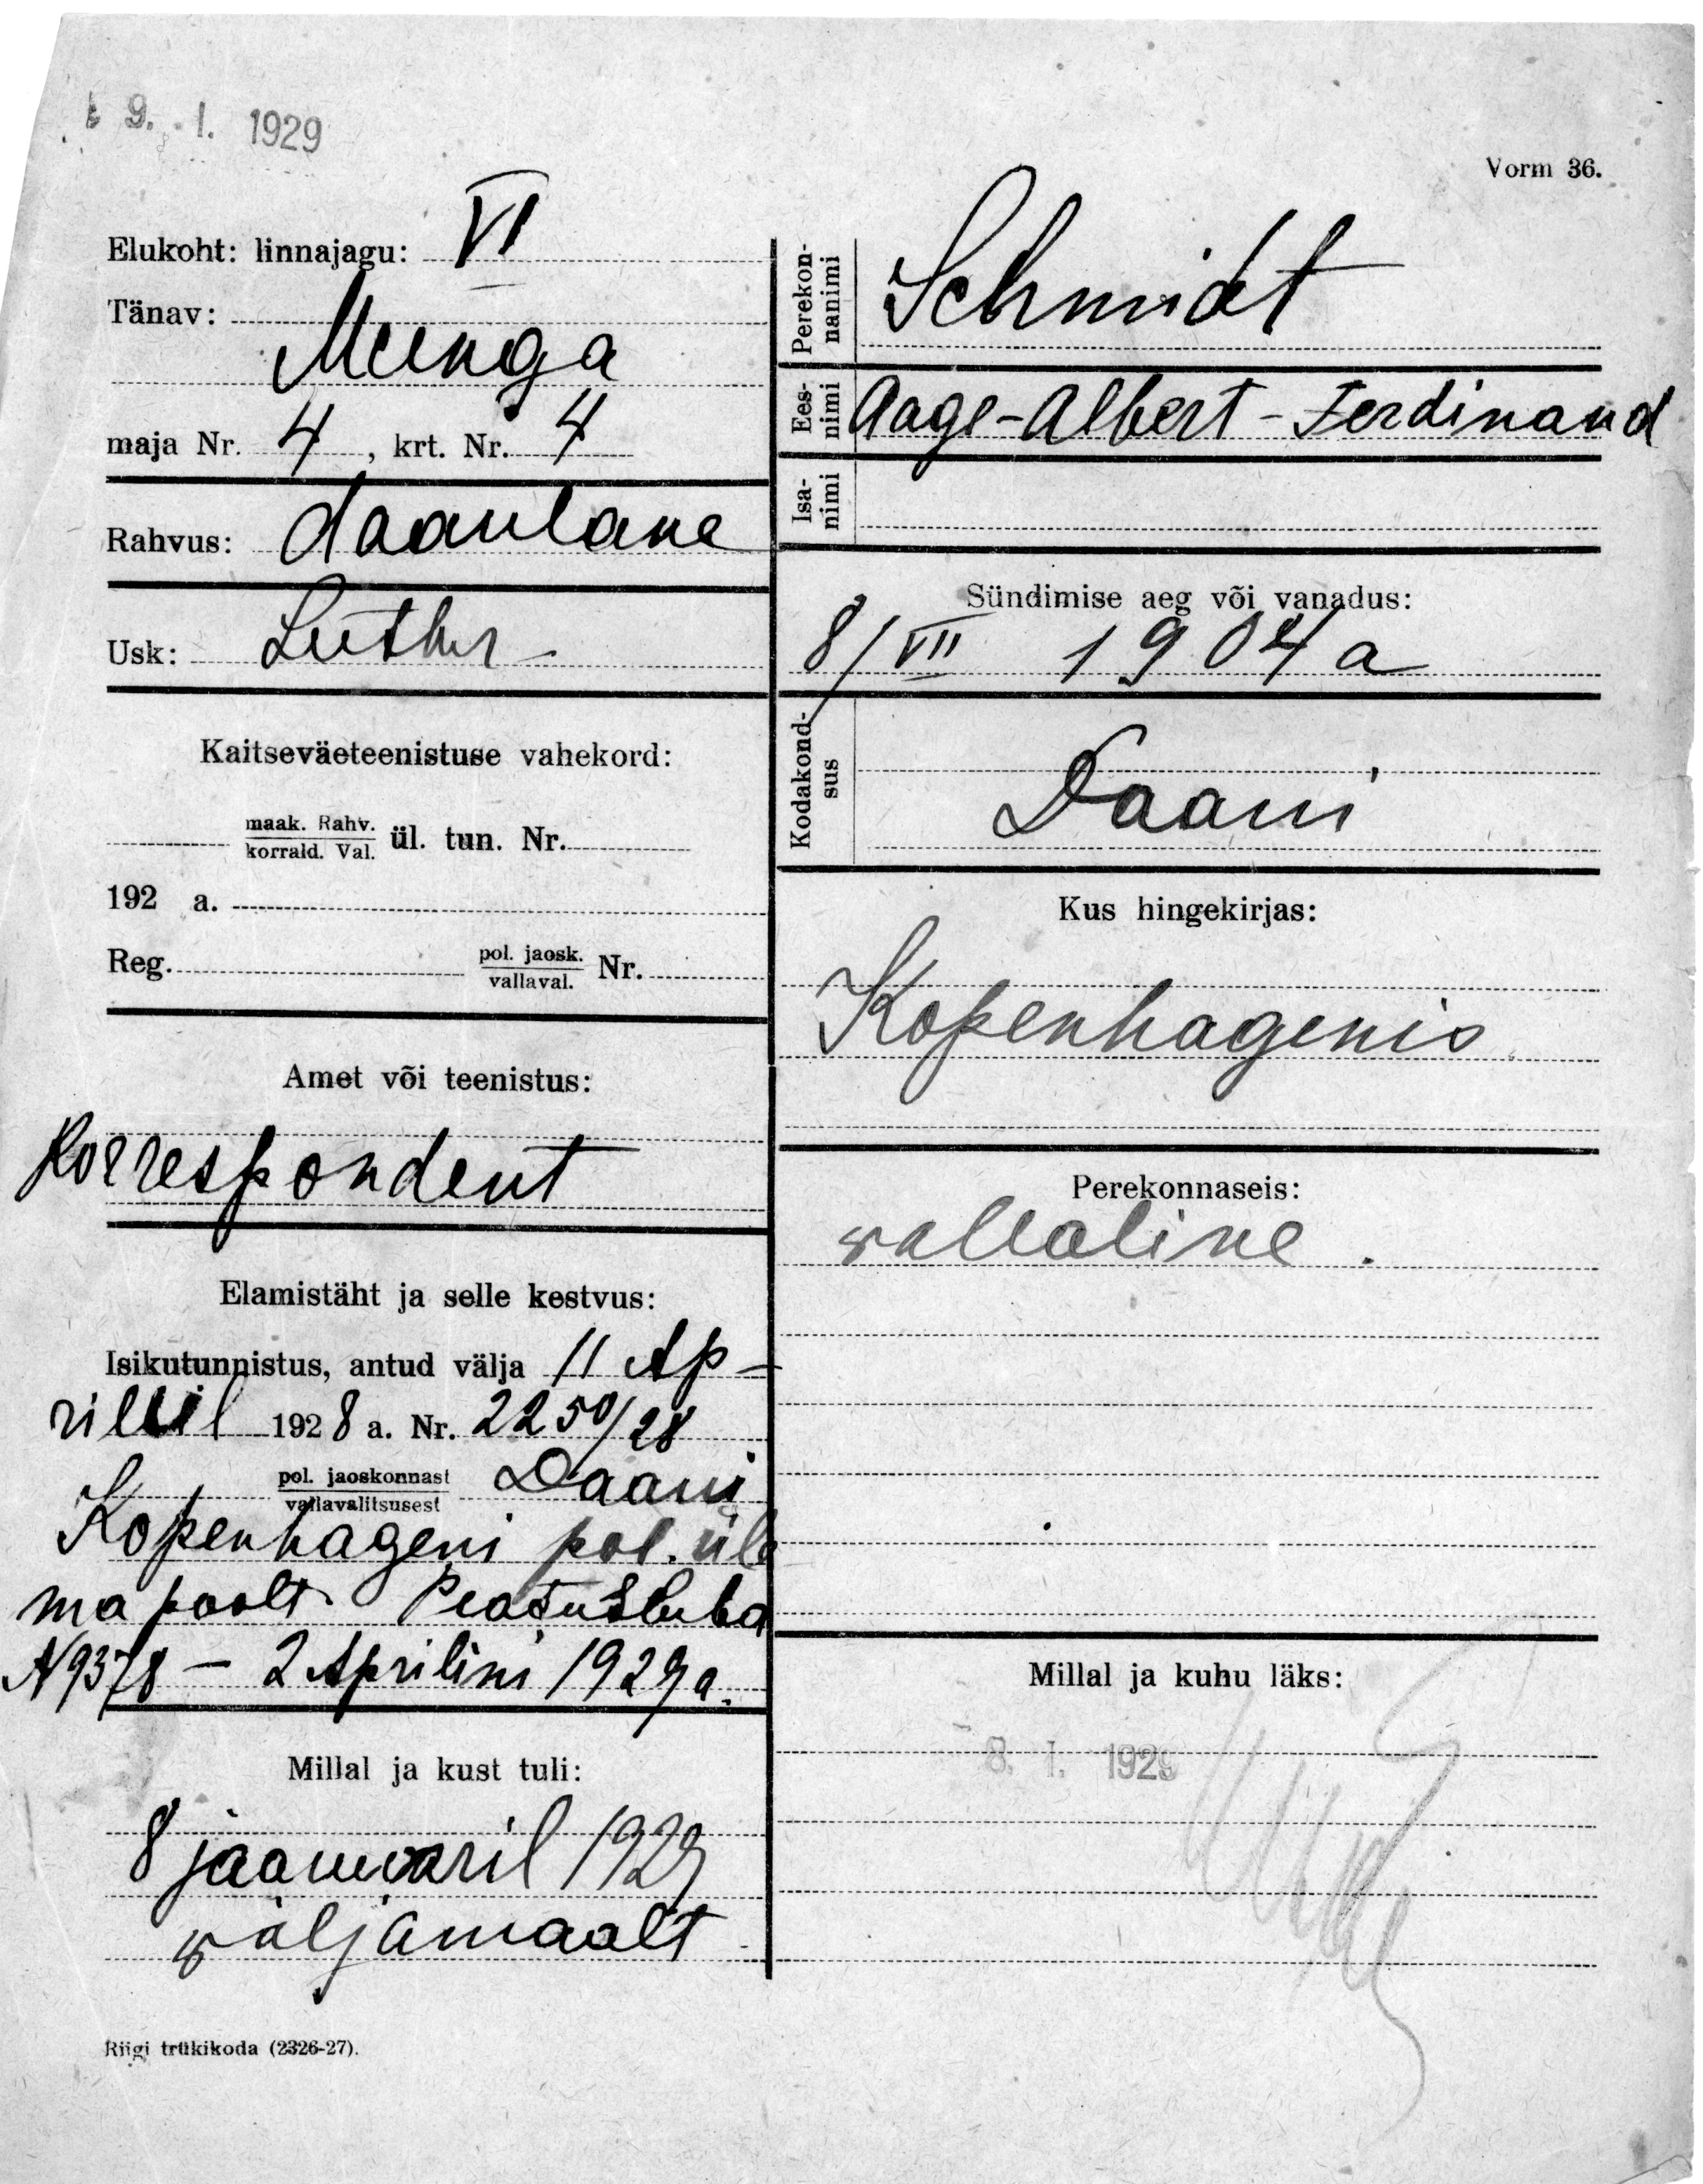 9. I. 1929
Vorm 36.
Elukoht: linnajagu: VI
Tänav:
Munga
maja Nr. 4, krt. Nr. 4
Rahvus: daanlane
Usk: Luther
Kaitseväeteenistuse vahekord:
maak. Rahv.
korrald. Val. ül. tun. Nr.
192 a.
Reg. pol. jaosk.
vallaval. Nr.
Amet või teenistus:
Korrespondent
Elamistäht ja selle kestvus:
Isikutunnistus, antud välja 11 Ap-
rillil 1928 a. Nr. 2250/28
pol. jaoskonnast
vallavalitsusest Daani
Kopenhageni pol. üle
ma poolt Peatusluba
N 9378 – 2 Aprilini 1929 a.
Millal ja kust tuli:
8 jaanuaril 1929
väljamaalt
Riigi trükikoda (2326-27).
Perekon-
nanimi
Schmidt
Ees-
nimi
Aage-Albert-Ferdinand
Isa-
nimi
Sündimise aeg või vanadus:
8/VII 1904 a
Kodakond-
sus
Daani
Kus hingekirjas:
Kopenhagenis
Perekonnaseis:
vallaline.
Millal ja kuhu läks:
8. I. 1929